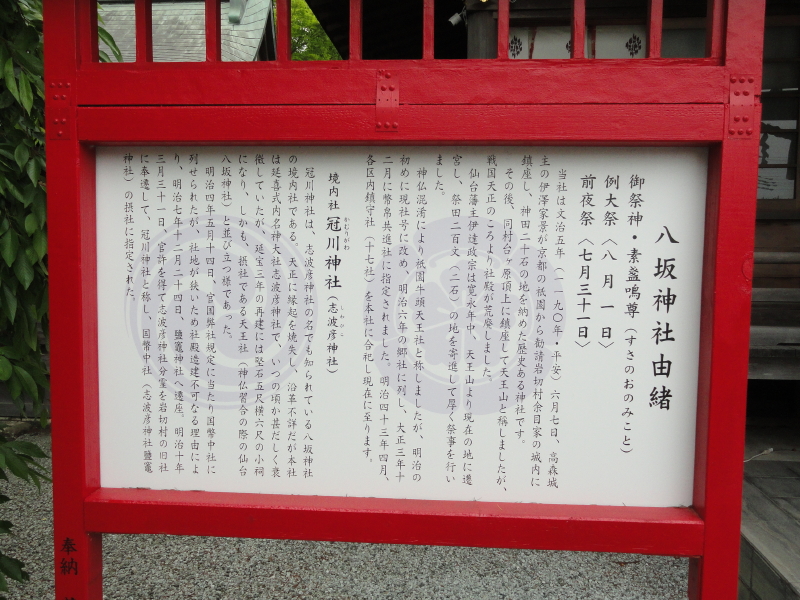 八坂神社由緒
御祭神・素盞嗚尊（すさのおのみこと）
例大祭〈八月一日〉
前夜祭〈七月三十一日〉
当社は文治五年（一一九〇年・平安）六月七日、高森城
主の伊澤家景が京都の祇園から勧請岩切村余目家の城内に
鎮座し、神田二十石の地を納めた歴史ある神社です。
その後、同村台ヶ原頂上に鎮座して天王山と称しましたが、
戦国天正のころより社殿が荒廃しました。
仙台藩主伊達政宗は寛永年中、天王山より現在の地に遷
宮し、祭田二百文（二石）の地を寄進して厚く祭事を行い
ました。
神仏混淆により祇園牛頭天王社と称しましたが、明治の
初めに現社号に改め、明治六年の郷社に列し、大正三年十
二月に幣帛共進社に指定されました。明治四十三年四月、
各区内鎮守社（十七社）を本社に合祀し現在に至ります。
境内社 冠川神社（志波彦神社）
かむりがわ
しわひこ
冠川神社は、志波彦神社の名でも知られている八坂神社
の境内社である。天正に縁起を焼失し、沿革不詳だが本社
は延喜式内名神大社志波彦神社で、いつの頃か甚だしく衰
微していたが、延宝三年の再建には竪石五尺横六尺の小祠
になり、しかも、摂社である天王社（神仏習合の際の仙台
八坂神社）と並び立つ様であった。
明治四年五月十四日、官国弊社規定に当たり国幣中社に
列せられたが、社地が狭いため社殿造建不可なる理由によ
り、明治七年十二月二十四日、鹽竈神社へ遷座。明治十年
三月三十一日、官許を得て志波彦神社分霊を岩切村の旧社
に奉遷して、冠川神社と称し、国幣中社（志波彦神社鹽竈
神社）の摂社に指定された。
奉納